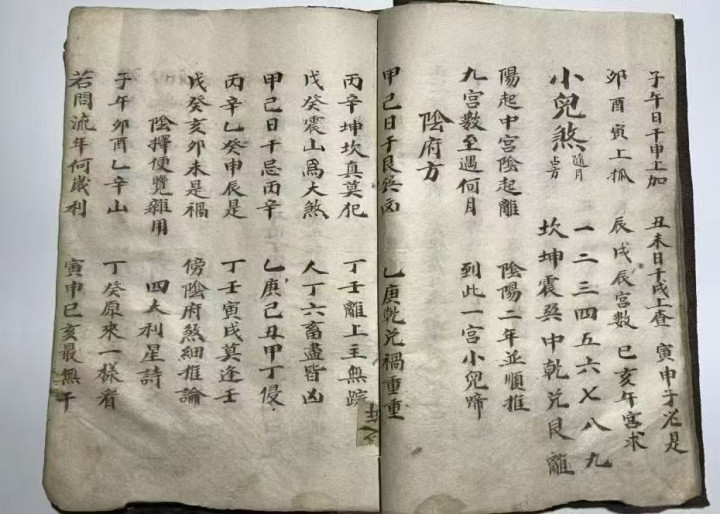 子午日干申上加 丑未日干戌上查 寅申子是
卯酉寅上抓 辰戌辰宮數 巳亥午宮求
小兒煞 隨月占方 一二三四五六七八九
坎坤震巽中乾兌艮離
陽起中宮陰起離 陰陽二年並順推
九宮數至遇何月 到此一宮小兒啼
陰府方
甲己日干艮凶 乙庚乾兌禍重重
丙辛坤坎真莫犯 丁壬離上主無踪
戊癸震山爲大煞 人丁六畜盡皆凶
甲己日干忌丙辛 乙庚己丑甲丁侵
丙辛乙癸申辰是 丁壬寅戌莫逢壬
戊癸亥卯未是禍 傍陰府煞細推論
陰擇便覽雜用 四大利星詩
子午卯酉乙辛山 丁癸原來一樣看
若問流年何歲利 寅申巳亥最無干